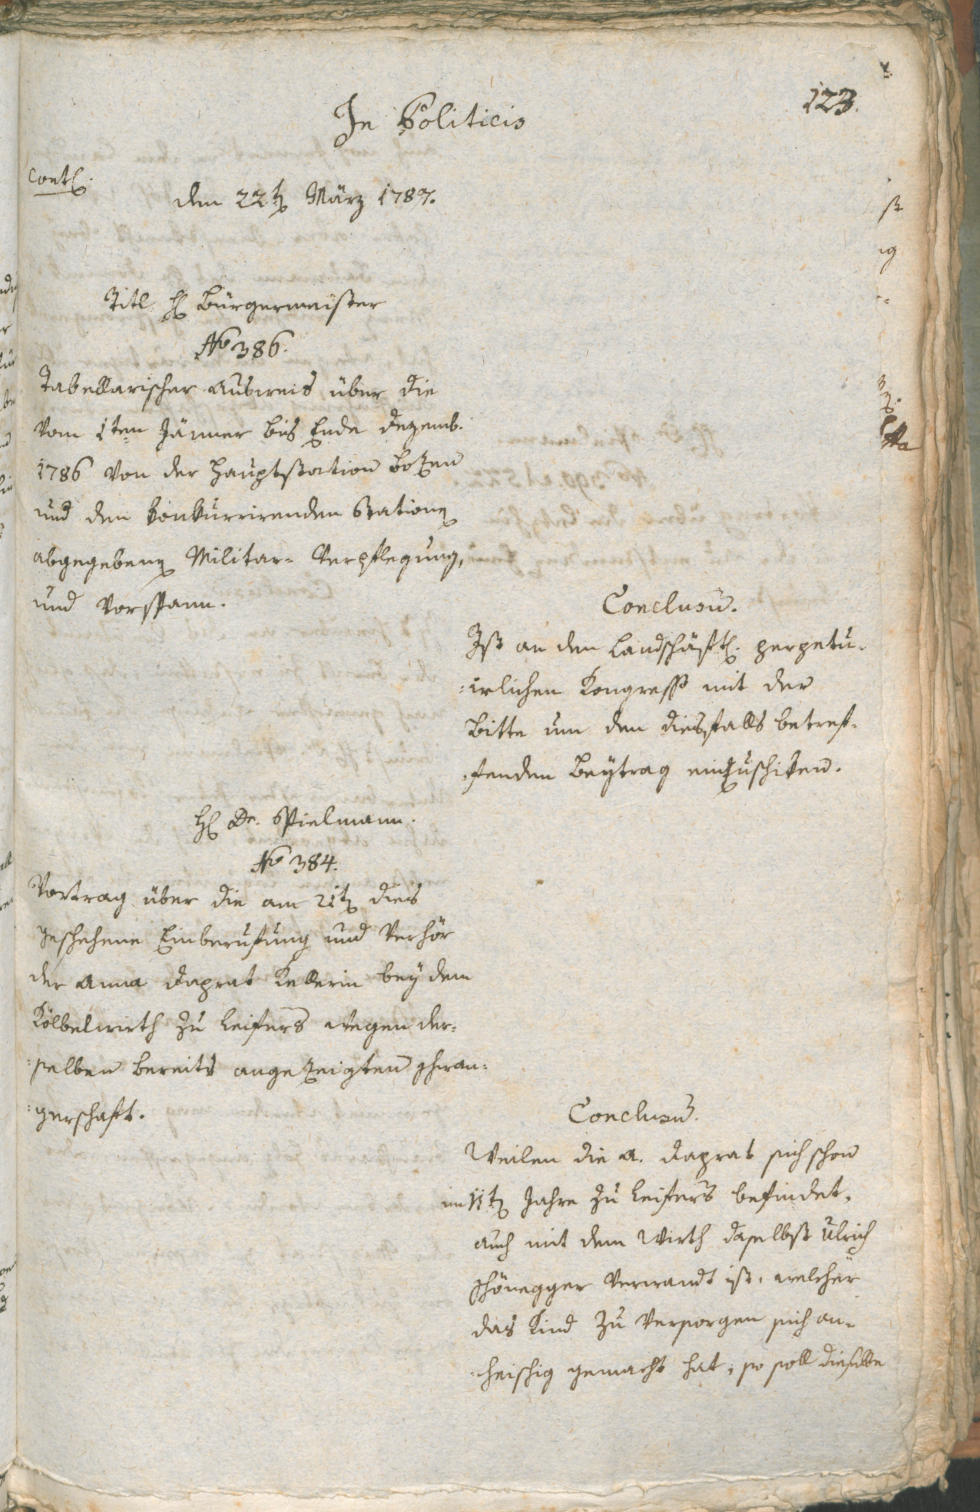 123.
In Politicis
Contl.
den 22tn März 1787.
Titl. H. Bürgermeister
No 386.
Tabellarischer Ausweis über die
vom 1ten Jänner bis Ende Dezemb.
1786 von der Hauptstation Bozen
und den konkurrirenden Stationen
abgegebenen Militar- Verpflegung,
und Vorspann.
Conclusū.
Ist an den Landschäftl. perpetu-
:irlichen Kongress mit der
Bitte um den diesfalls betref-
:fenden Beytrag einzuschiken.
H. Dr. Spielmann.
No 384.
Vortrag über die am 21tn dies
geschehene Einberufung und Verhör
der Anna Daprat Kellerin bey dem
Kölbelwirth zu Leifers wegen der-
:selben bereits angezeigten schwan-
:gerschaft.
Conclusū.
Weilen die A. Daprat sich schon
im 11tn Jahre zu Leifers befindet,
auch mit dem Wirth daselbst Ulrich
schönegger Verwandt ist, welcher
das Kind zu Versorgen sich an-
:heischig gemacht hat, so soll dieselbe